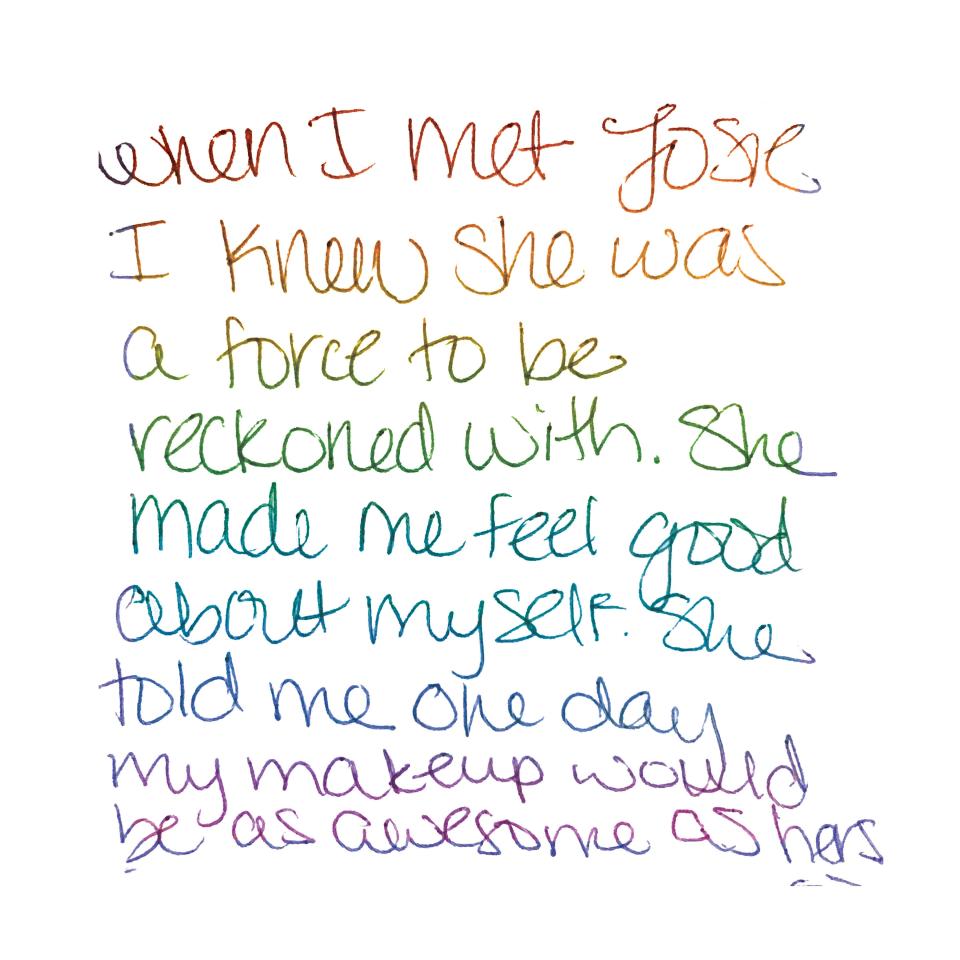 when I met Josie
I knew she was
a force to be
reckoned with. She
made me feel good
about myself. She
told me one day
my makeup would
be as awesome as hers